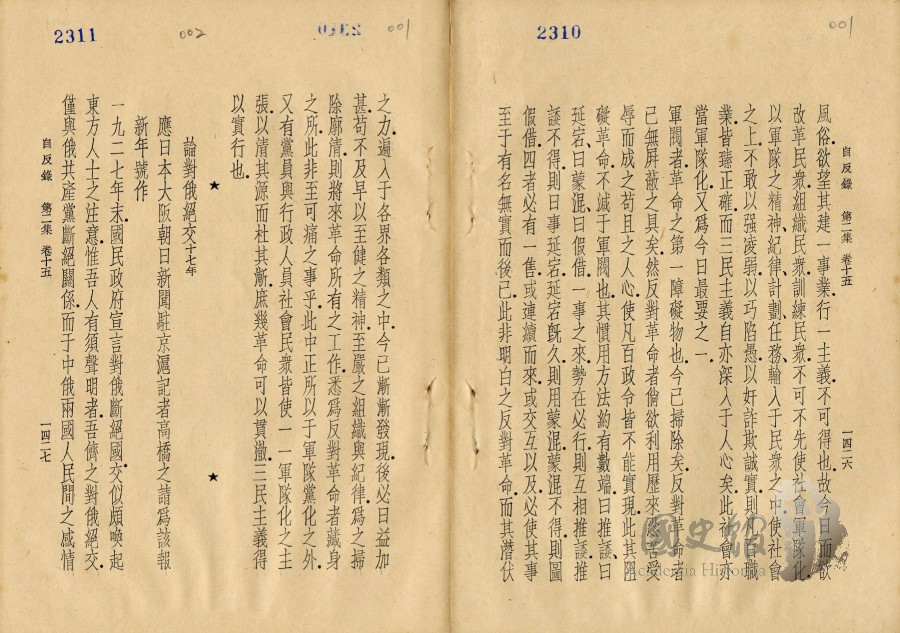 001
2310
自反錄 第二集 卷十五 一四二六
風俗欲望其建一事業行一主義不可得也故今日而欲
改革民衆組織民衆訓練民衆不可不先使社會軍隊化
以軍隊之精神紀律計劃任務輸入于民衆之中使社會
之上不敢以強凌弱以巧陷愚以奸詐欺誠實則凡百職
業皆臻正確而三民主義自亦深入于人心矣此社會亦
當軍隊化又爲今日最要之一
軍閥者革命之第一障礙物也今已掃除矣反對革命者
已無屏蔽之具矣然反對革命者倘欲利用歷來忍害受
辱而成之苟且之人心使凡百政令皆不能實現此其阻
礙革命不減于軍閥也其慣用方法約有數端曰推諉曰
延宕曰蒙混曰假借一事之來勢在必行則互相推諉推
諉不得則日事延宕延宕旣久則用蒙混蒙混不得則圖
假借四者必有一售或連續而來或交互以及必使其事
至于有名無實而後已此非明白之反對革命而其潛伏
2311
002
2310
001
之力遍入于各界各類之中今已漸漸發現後必日益加
甚苟不及早以至健之精神至嚴之組織與紀律爲之掃
除廓清則將來革命所有之工作悉爲反對革命者藏身
之所此非至可痛之事乎此中正所以于軍隊黨化之外
又有黨員與行政人員社會民衆皆使一一軍隊化之主
張以清其源而杜其漸庶幾革命可以貫澈三民主義得
以實行也
★ ★
論對俄絕交十七年
應日本大阪朝日新聞駐京滬記者高橋之請爲該報
新年號作
一九二七年末國民政府宣言對俄斷絕國交似頗喚起
東方人士之注意惟吾人有須聲明者吾儕之對俄絕交
僅與俄共產黨斷絕關係而于中俄兩國人民間之感情
自反錄 第二集 卷十五 一四二七
國史館
Academia Historica